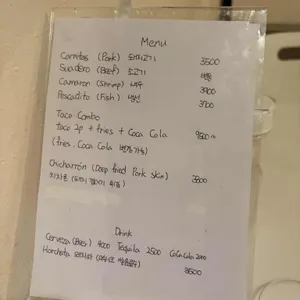 Menu
Carnitas (Pork) 돼지고기 3500
Suadero (Beef) 소고기
Camaron (Shrimp) 새우 3900
Pescadito (Fish) 생선 3700
Taco Combo
taco 2p + fries + Coca Cola
(fries, Coca Cola
Chicharrón (Deep fried Pork skin) 3800
Drink
Cerveza (Beer) 4000 Tequila 2500 CocaCola 2000
Horchata 3500